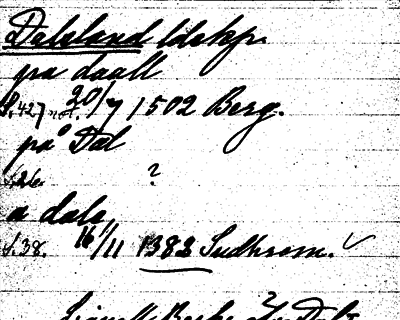 Dalsland ldskp.
på daall
S. 427 not. 20/7 1502 Berg.
på Dal
S. 26. ?
a dala
S. 38. 16/11 1383 Sudhrem. ✓